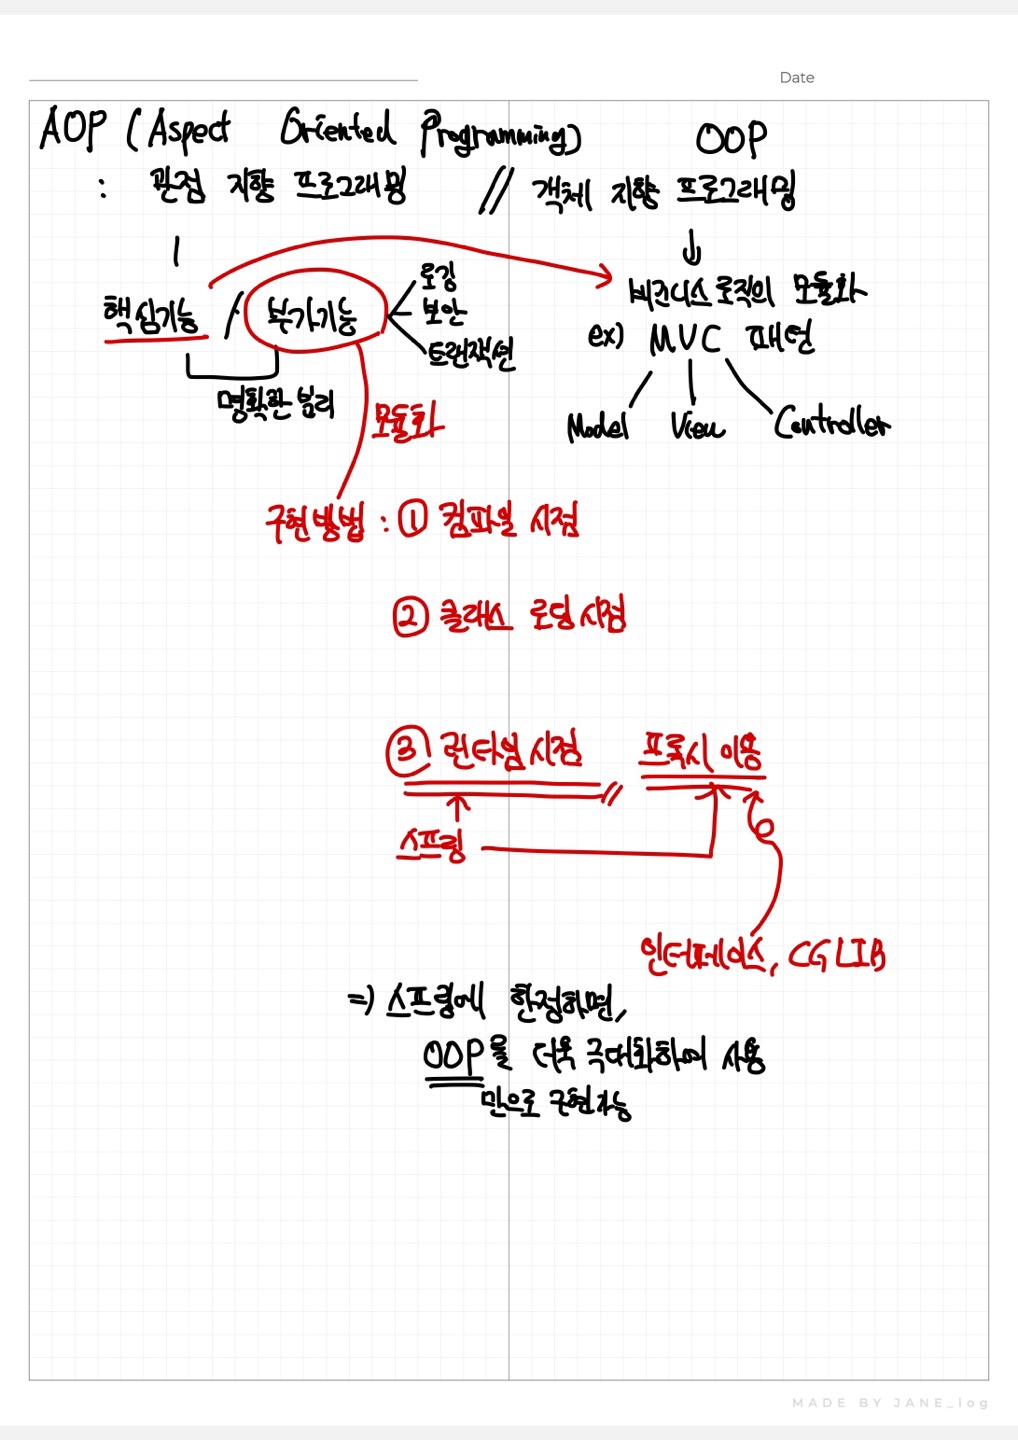 Date
AOP (Aspect Oriented Programming)
OOP
: 관점 지향 프로그래밍 // 객체 지향 프로그래밍
핵심기능 / 부가기능
로깅
보안
트랜잭션
명확한 분리
모듈화
비즈니스 로직의 모듈화
ex) MVC 패턴
Model View Controller
구현방법 : ① 컴파일 시점
② 클래스 로딩 시점
③ 런타임 시점 // 프록시 이용
스프링
인터페이스, CGLIB
=> 스프링에 한정하면,
OOP를 더욱 극대화하여 사용
만으로 구현가능
MADE BY JANE_log